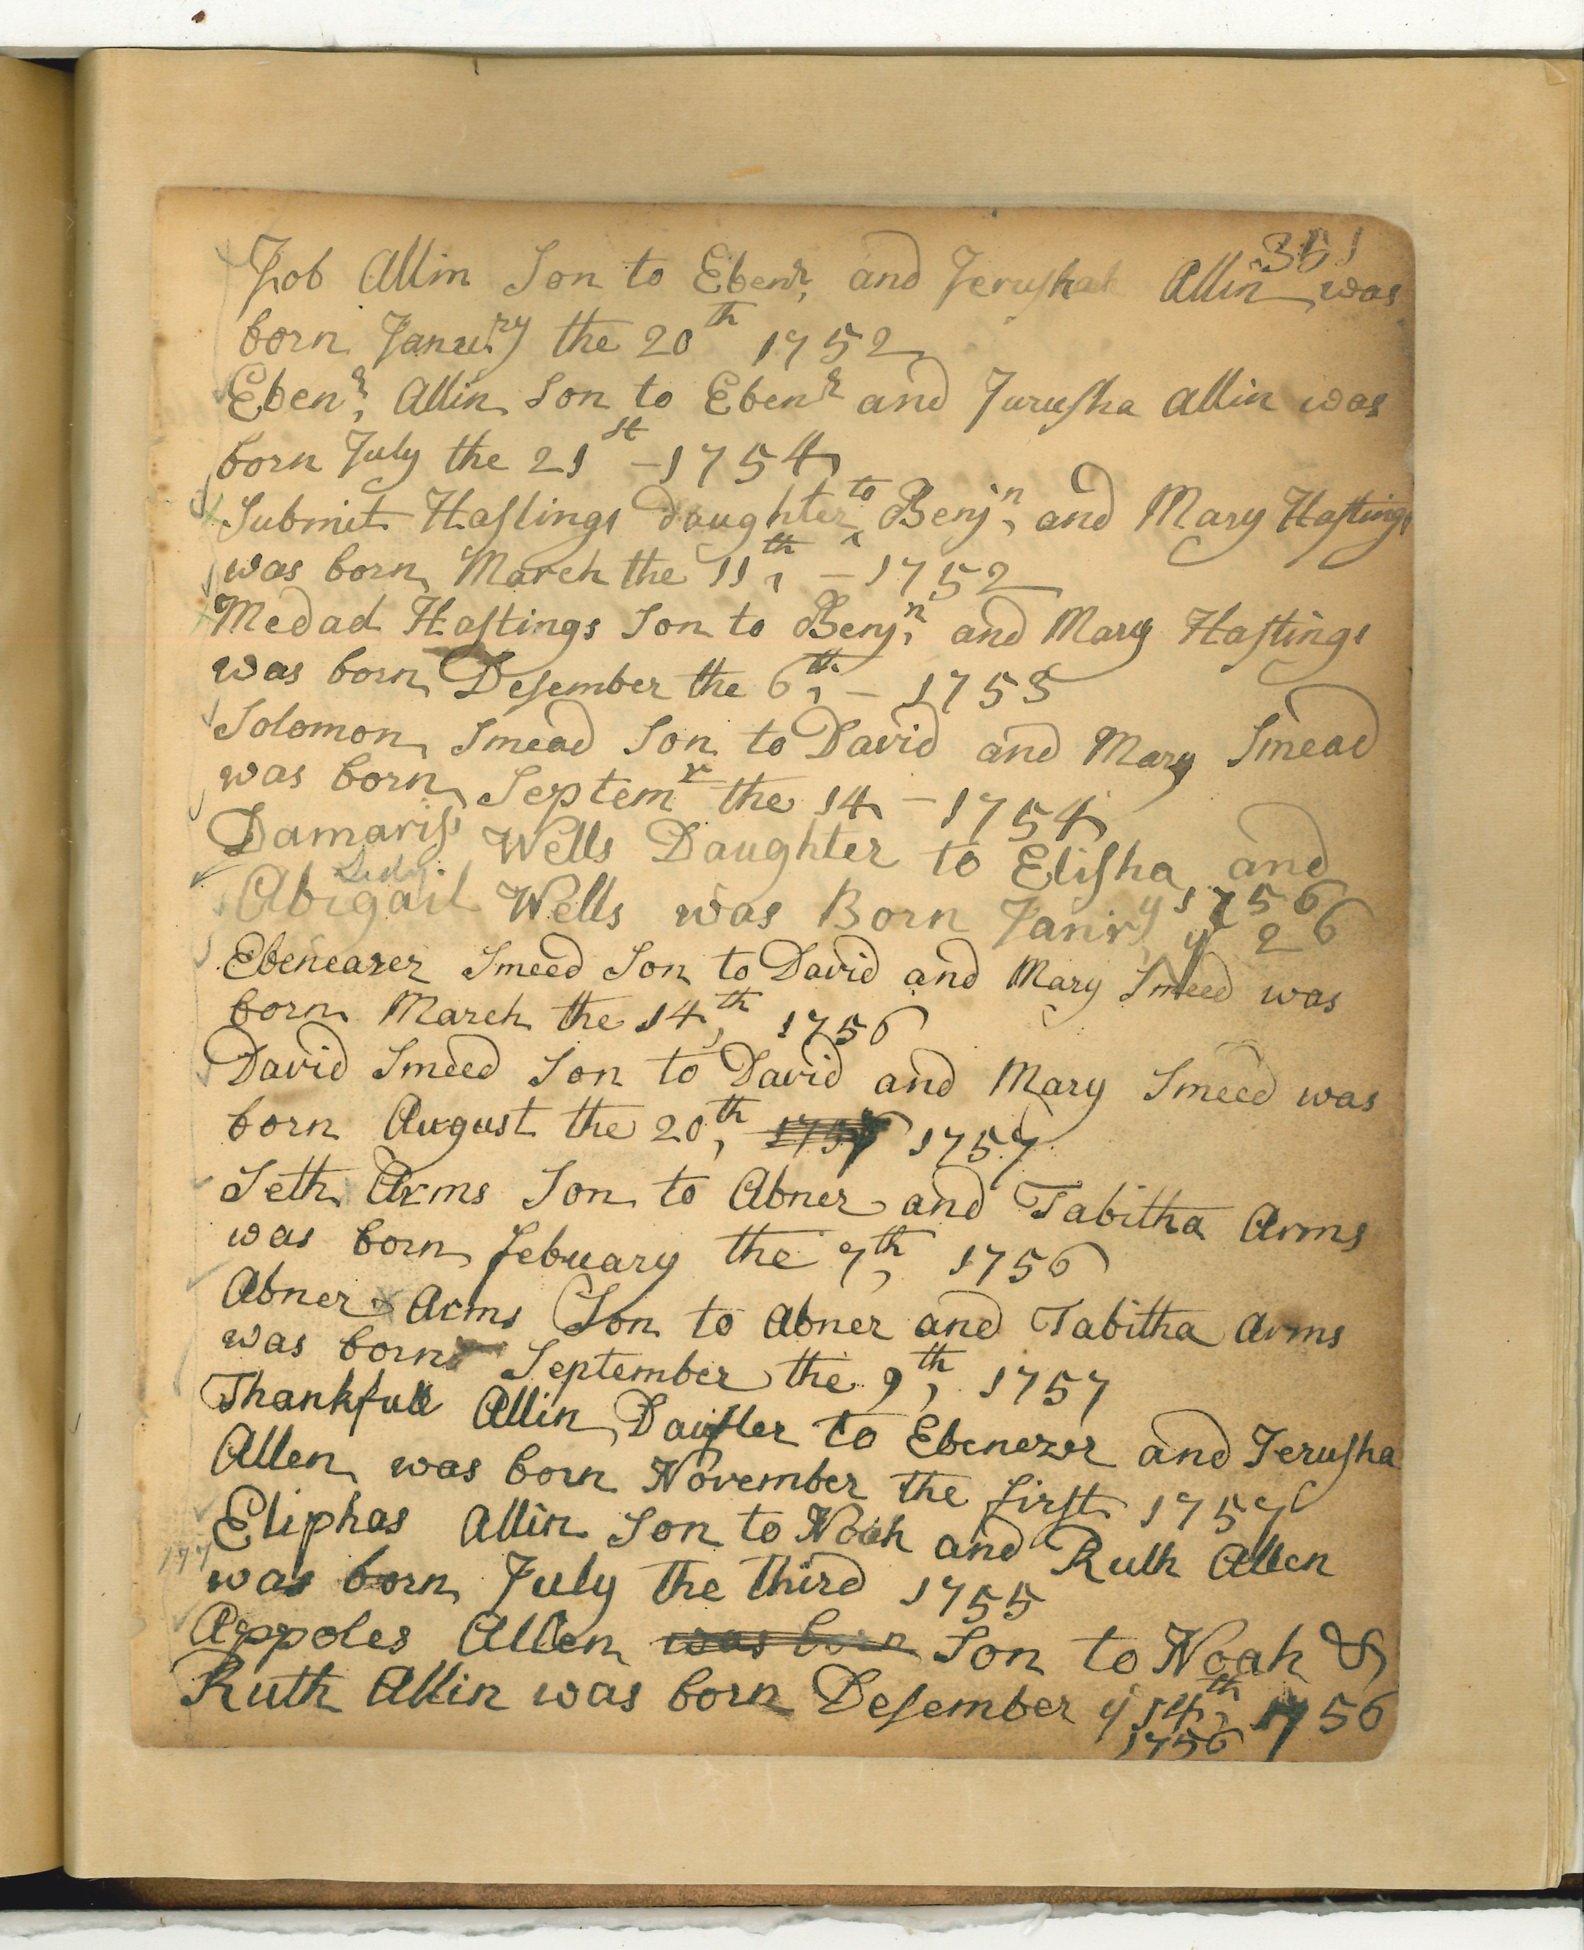 361
Job Allin Son to Ebenr, and Jerushah Allin was
born Janu.ry the 20th 1752
Ebenr, Allin Son to Ebenr and Jurusha allin was
born July the 21st - 1754
Submit Hastings Daughter to Benjn, and Mary Hastings
was born March the 11th, - 1752
Medad Hastings Son to Benj,n and Mary Hastings
was born Desember the 6th, - 1755
Solomon Smead Son to David and Mary Smead
was born Septemr the 14 - 1754
Damariss Wells Daughter to Elisha and
Abigail Wells was Born Janiry 1756
ye 26
Ebenearer Smeed Son to David and Mary Smeed was
born March the 14,th 1756
David Smeed Son to David and Mary Smeed was
born August the 20th, 1756 1757
Seth Arms Son to Abner and Tabitha Arms
was born febuary the 7th, 1756
Abner Arms Son to Abner and Tabitha Arms
was born September the 9th, 1757
Thankfull Allin Daufter to Ebenezer and Jerusha
Allen was born November the first 1757
Eliphas Allin Son to Noah and Ruth Allen
was born July the third 1755
Appoles Allen was born Son to Noah &
Ruth Allin was born Desember ye 14th, 1756
1756